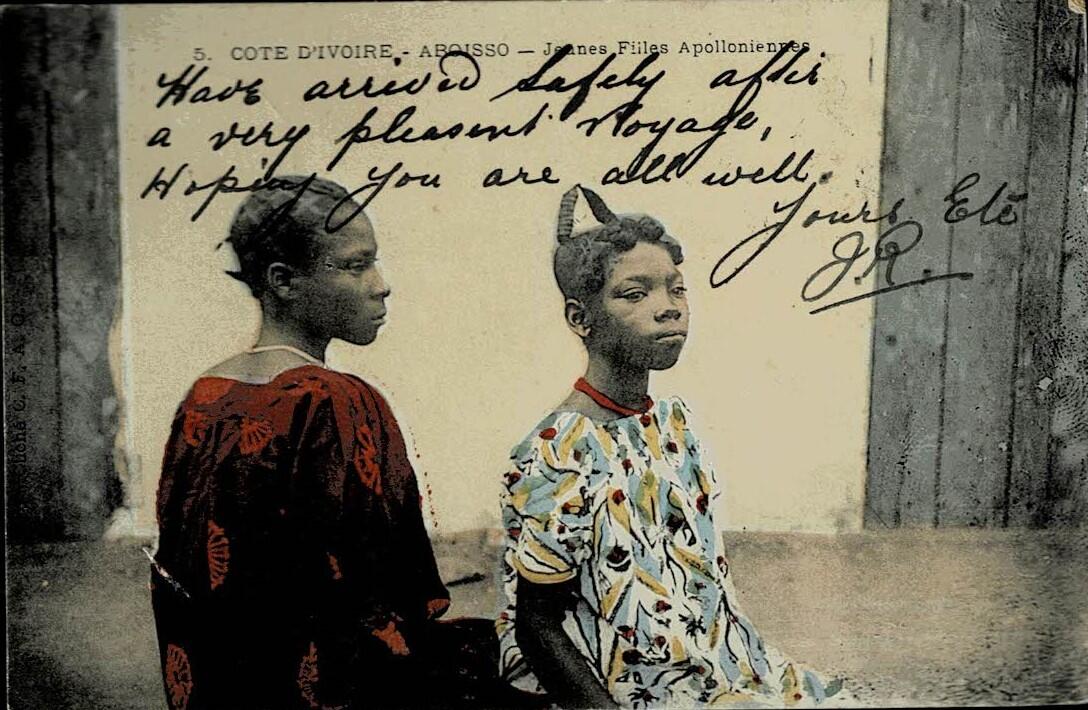 5. COTE D'IVOIRE - ABOISSO — Jeunes Filles Apolloniennes
Have arrived safely after
a very pleasent voyage,
Hoping you are all well.
Yours Etc
J.R.
C. F. A. O.